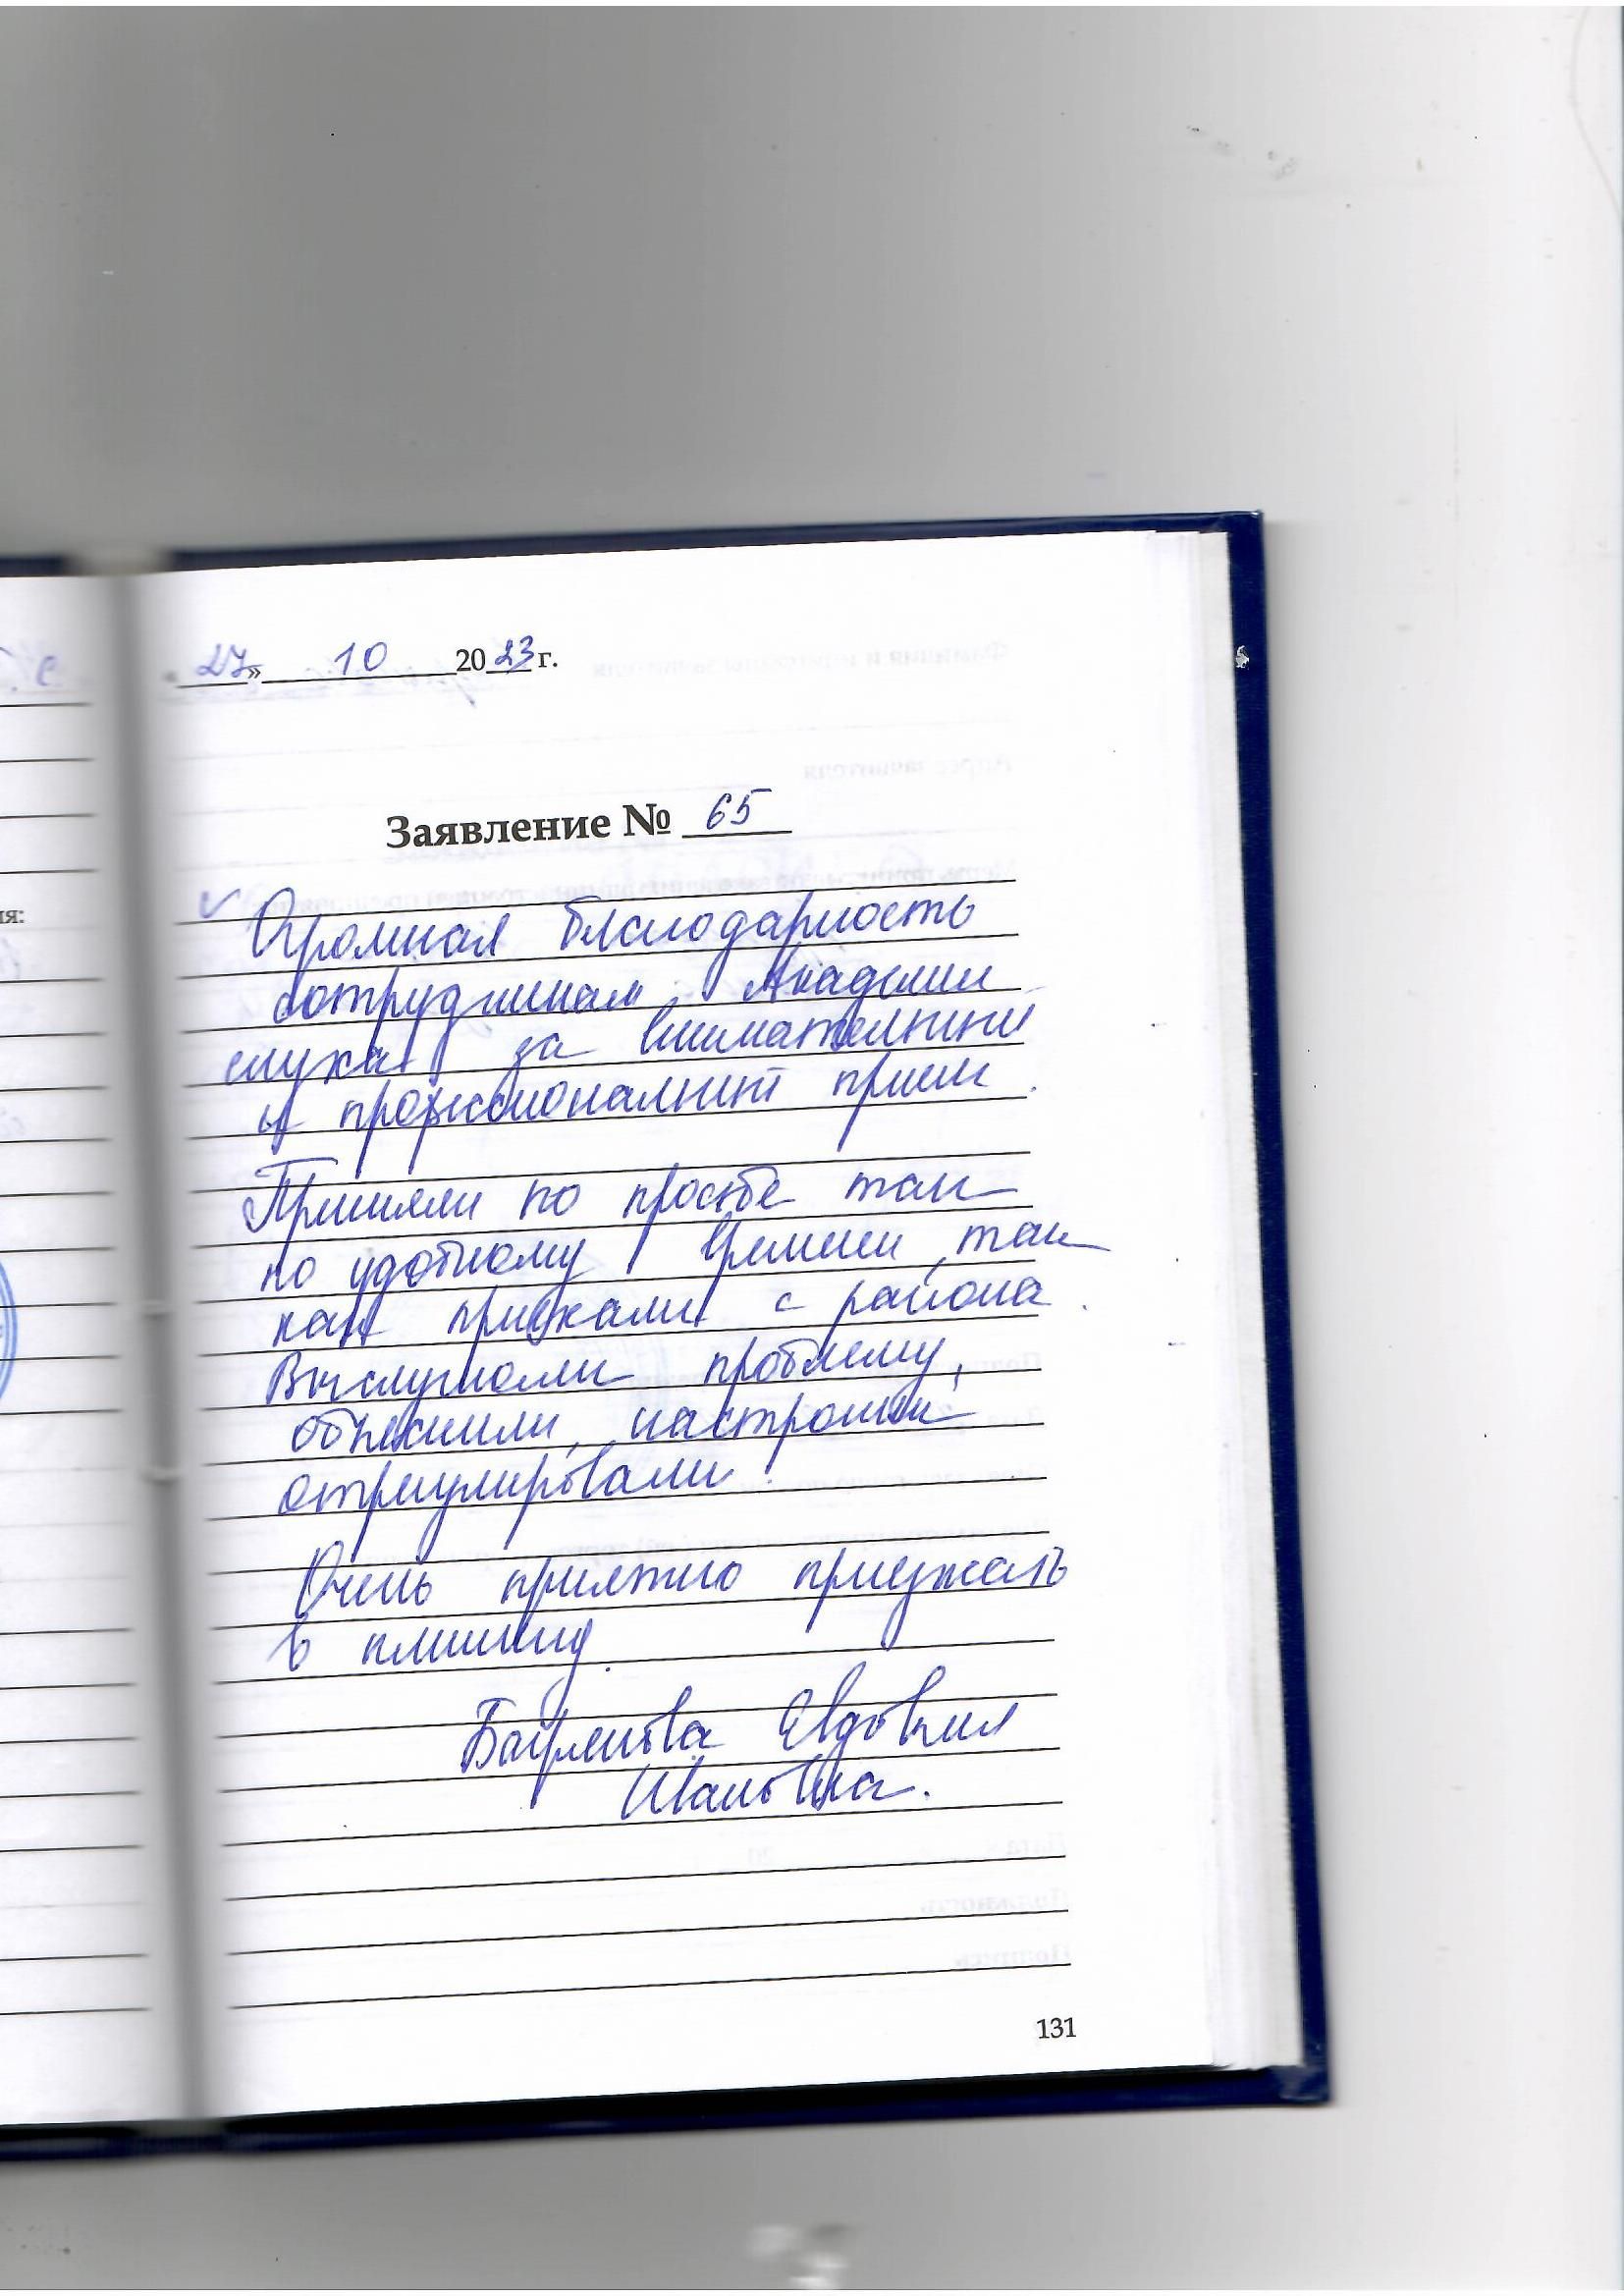 27» 10 2023 г.
Заявление № 65
Огромная благодарность
сотрудникам Академии
слуха за внимательный
и профессиональный прием.
Приняли по просьбе там
по удобному времени, так
как приехали с района.
Выслушали проблему,
объяснили, настроили
отрегулировали.
Очень приятно приезжать
в клинику.
Евдокия
Ивановна.
131
ия: